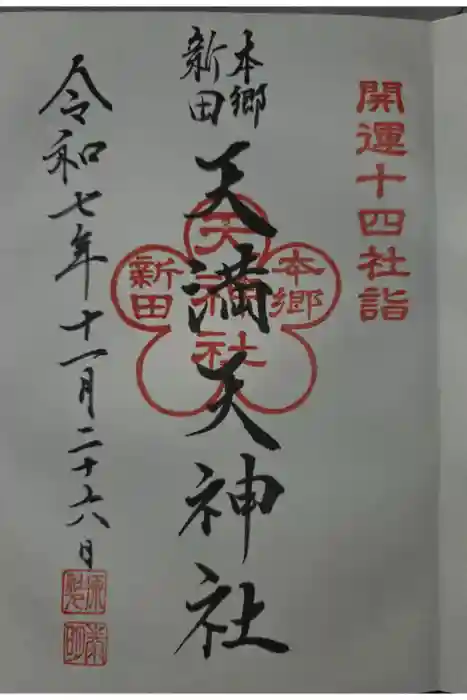 開運十四社詣
本郷
新田
天満天神社
天
神
社
本郷
新田
令和七年十一月二十六日